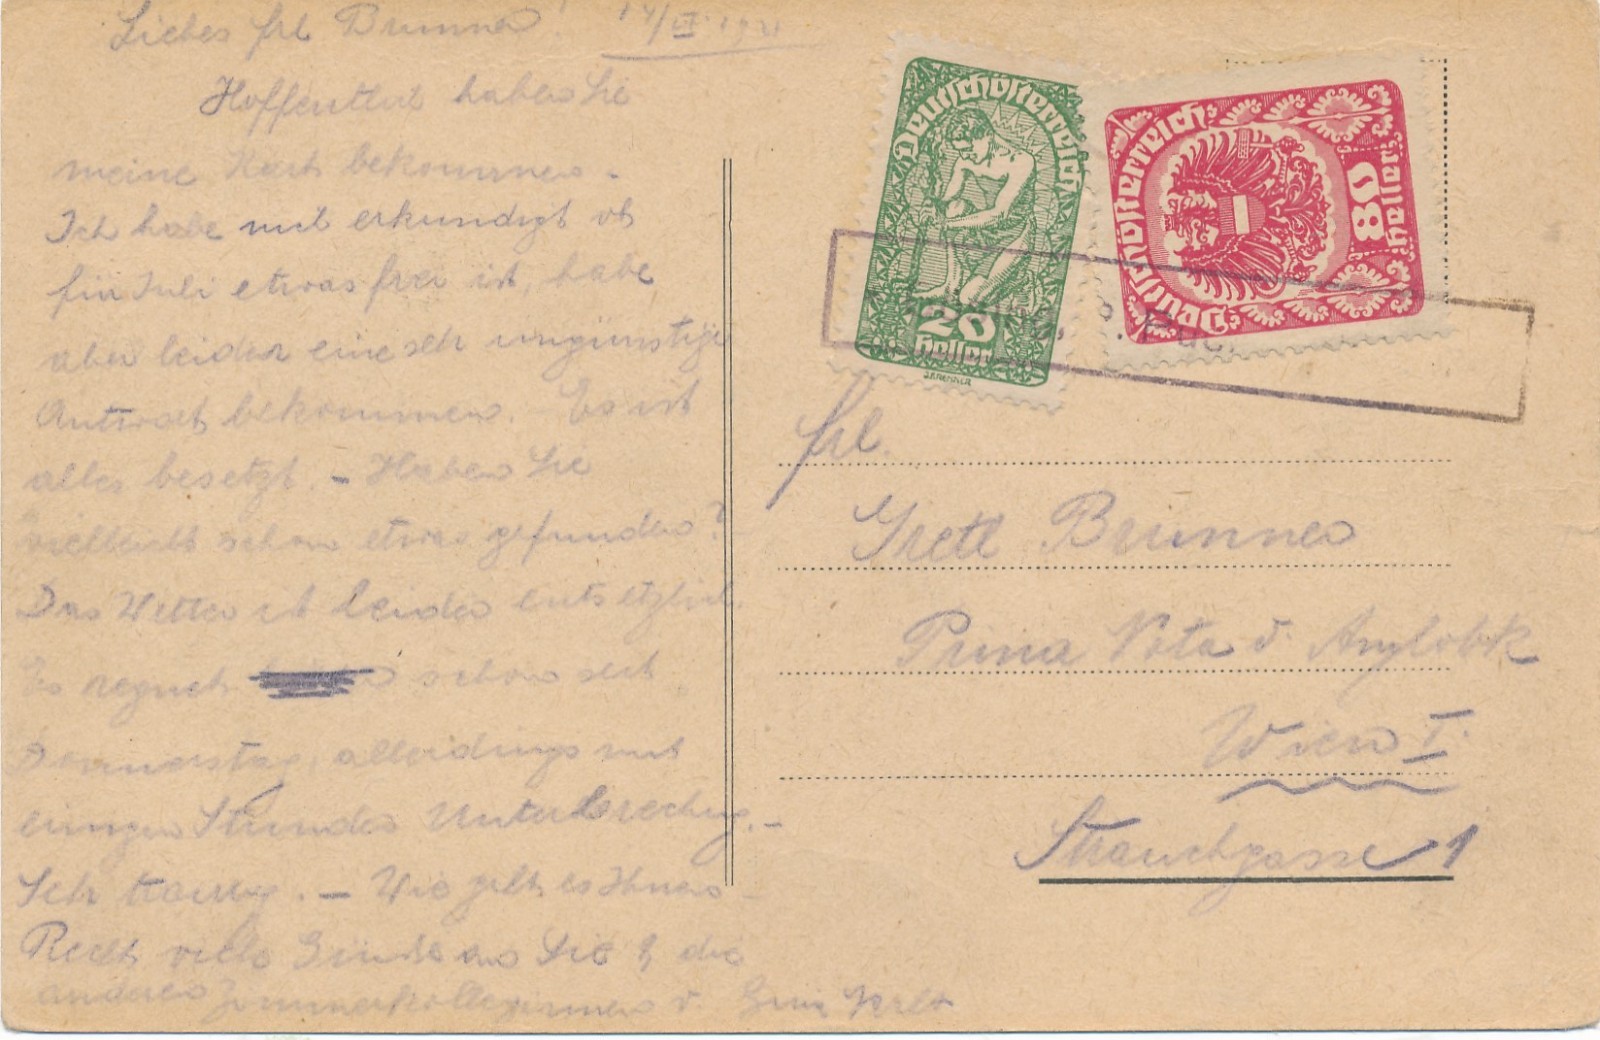 Liebes Frl Brunner! 14/VI. 1921
Hoffentlich haben Sie
meine Karte bekommen.
Ich habe mich erkundigt ob
für Juli etwas frei ist, habe
aber leider eine sehr ungünstige
Antwort bekommen. Es ist
alles besetzt. - Haben Sie
vielleicht schon etwas gefunden?
Das Wetter ist leider entsetzlich.
Es regnet schon seit
Donnerstag, allerdings mit
einigen Stunden Unterbrechung. -
Sehr traurig. - Wie geht es Ihnen
Recht viele Grüße an Sie & die
anderen Zimmerkolleginnen v.
Deutschösterreich
20
Heller
Deutschösterreich
80
Heller
Frl.
Gretl Brunner
Prima Nota d. Anglobk
Wien I.
Strauchgasse 1